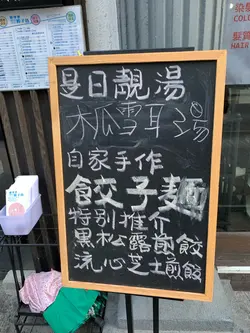 是日靚湯
木瓜雪耳湯
自家手作
餃子麵
特別推介
黑松露煎餃
流心芝士煎餃